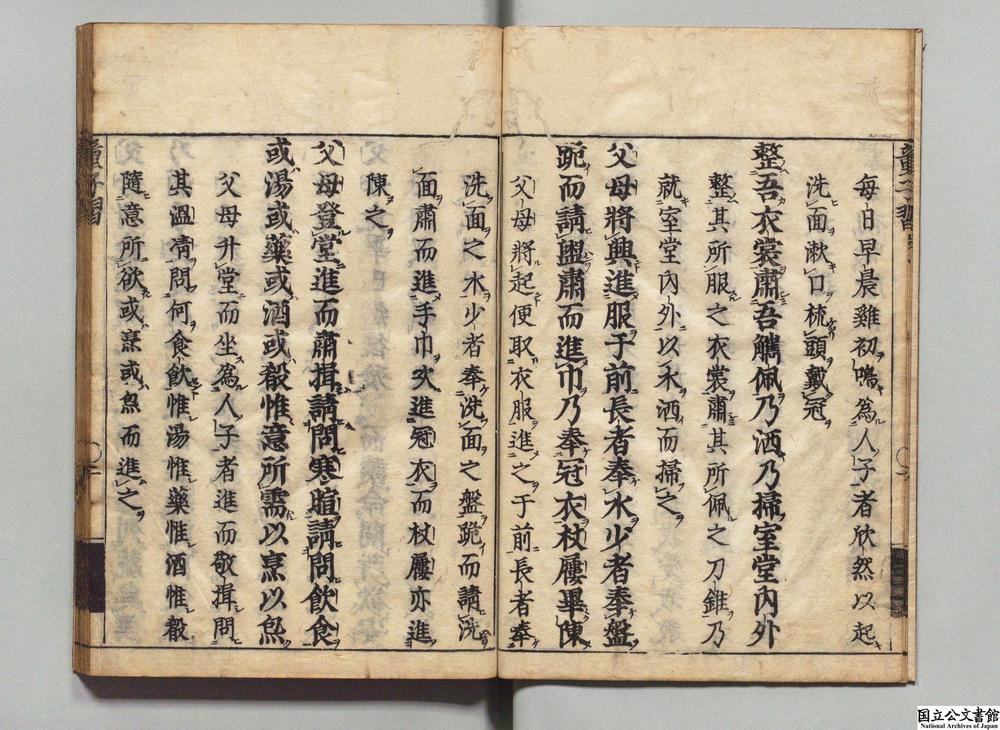 每日早晨雞初鳴爲人子者欣然以起
洗面漱口梳頭戴冠
整吾衣裳肅吾觿佩乃洒乃掃室堂內外
整其所服之衣裳肅其所佩之刀錐乃
就室堂內外以水洒而掃之
父母將興進服于前長者奉水少者奉盤
跪而請盥肅而進巾乃奉冠衣杖屨畢陳
父母將起便取衣服進之于前長者奉
洗面之水少者奉洗面之盤跪而請洗
面肅而進手巾次進冠衣而杖屨亦進
陳之
父母登堂進而肅揖請問寒暄請問飲食
或湯或藥或酒或殽惟意所需以烹以炰
父母升堂而坐爲人子者進而敬揖問
其溫凊問何食飲惟湯惟藥惟酒惟殽
隨意所欲或烹或炰而進之
童子習
童子習
国立公文書館
National Archives of Japan